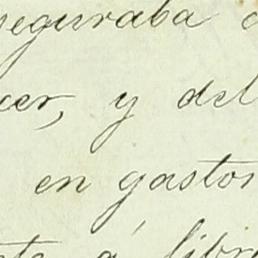 seguraba
cer, y del
en gastos
nte á libr